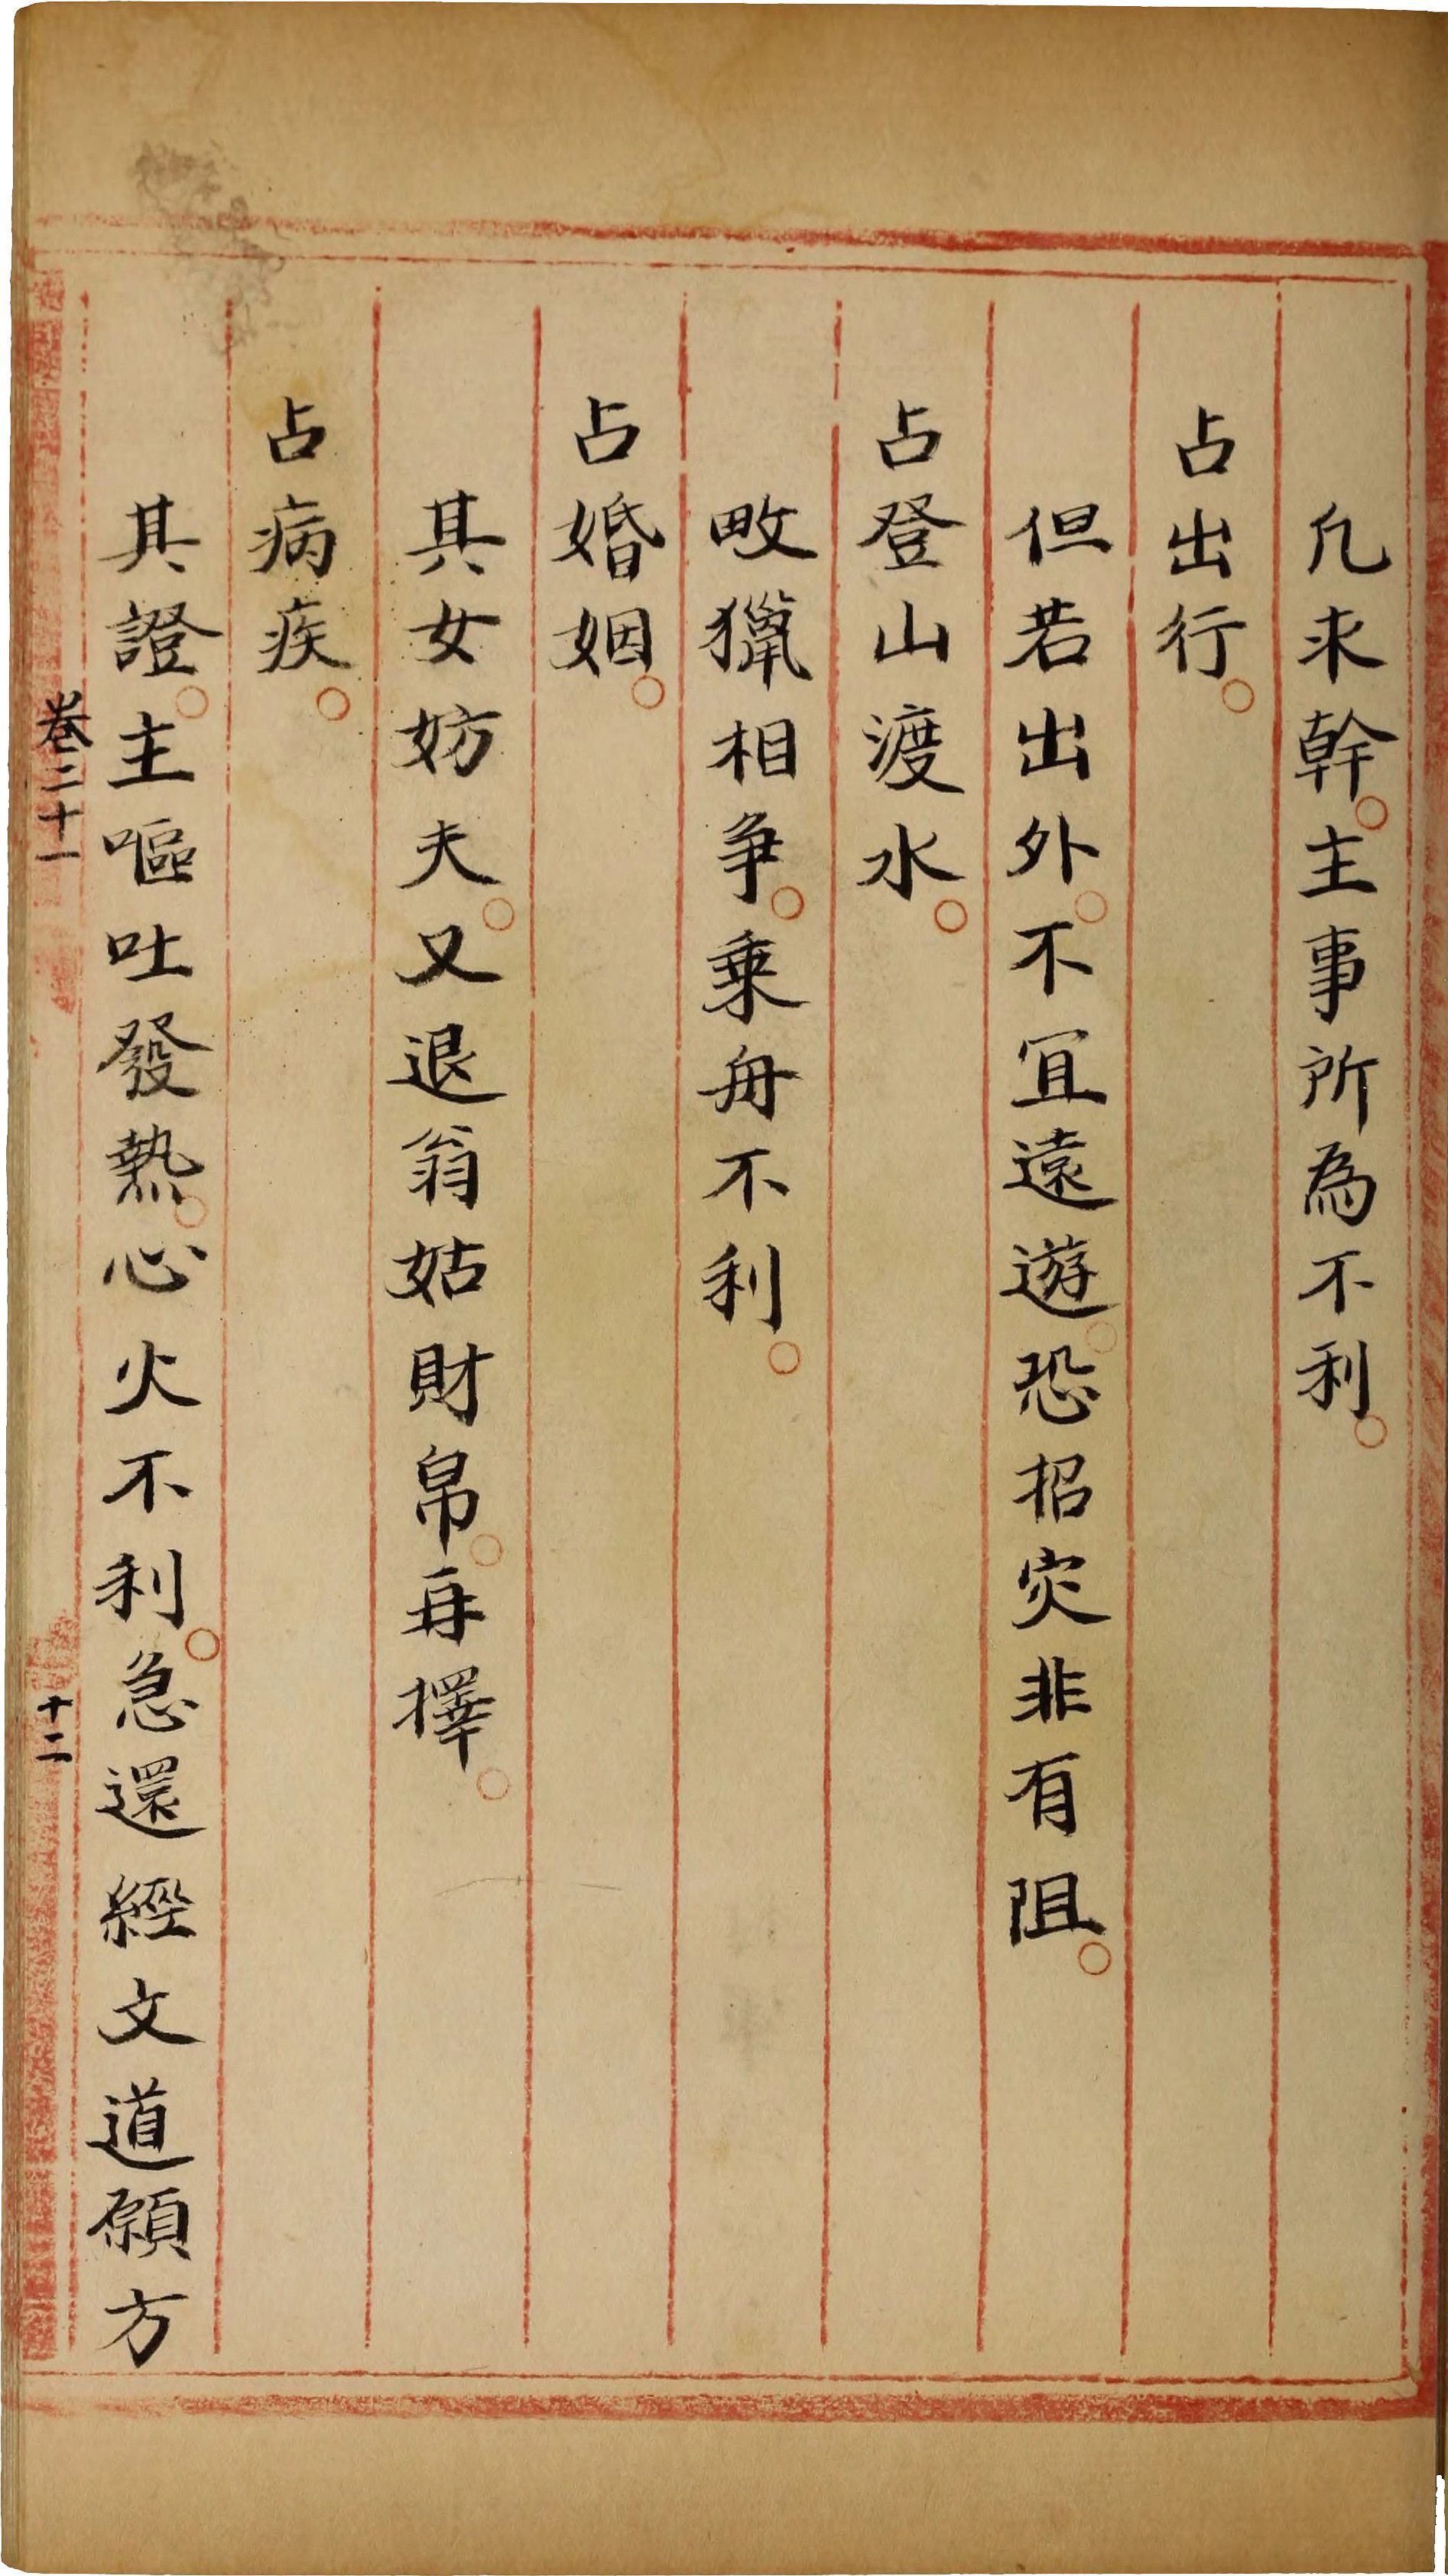 凡求幹。主事所為不利。
占出行。
但若出外。不宜遠遊。恐招灾非有阻。
占登山渡水。
畋獵相爭。乗舟不利。
占婚姻。
其女妨夫。又退翁姑財帛。再擇。
占病疾。
其證。主嘔吐發熱。心火不利。急還經文道願方
卷二十一
十二